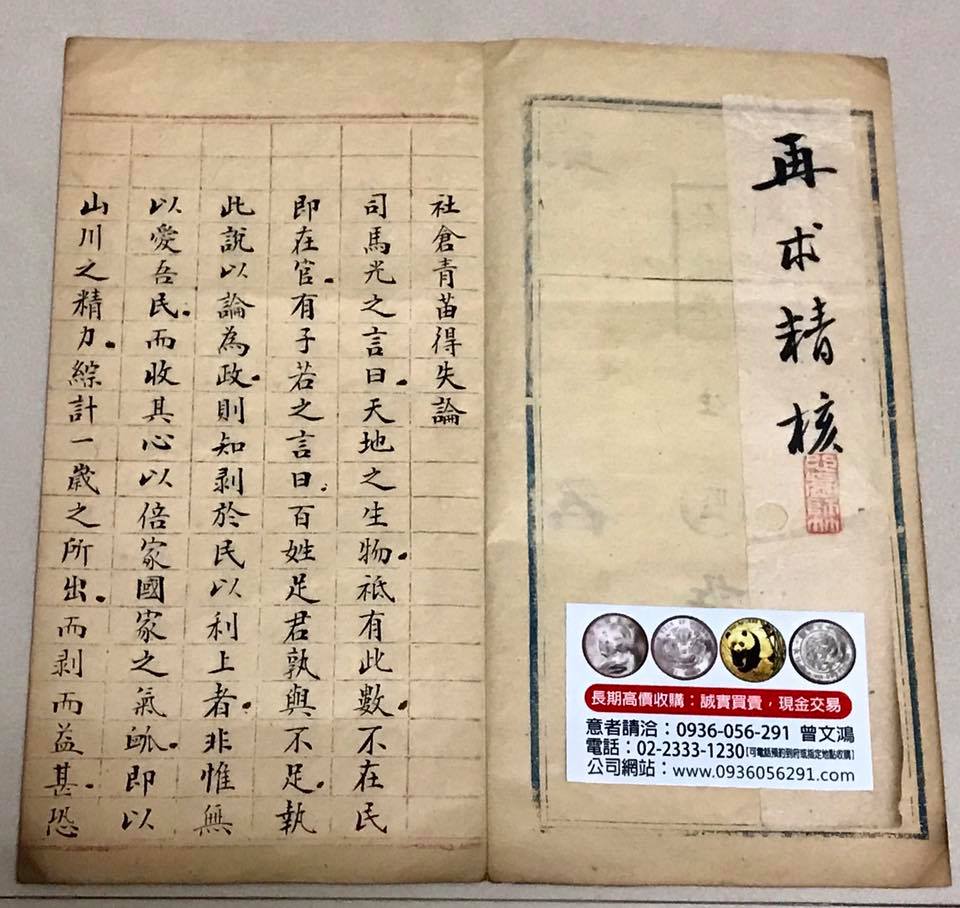 再求精核
長期高價收購：誠實買賣，現金交易
意者請洽：0936-056-291 曾文鴻
電話：02-2333-1230[可電話預約到府或指定地點收購]
公司網站：www.0936056291.com
社倉青苗得失論
司馬光之言曰。天地之生物。祇有此數。不在民
即在官。有子若之言曰。百姓足君孰與不足。執
此說以論為政。則知剥於民以利上者。非惟無
以愛吾民。而收其心以倍家國家之氣脈。即以
山川之精力。綜計一歲之所出。而剥而益甚。恐